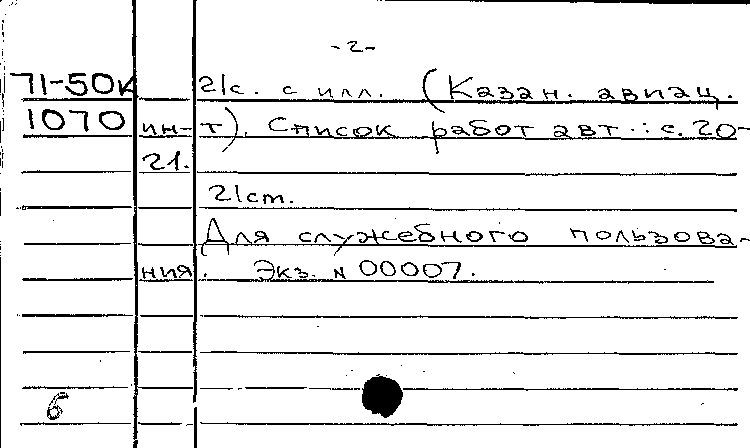 -2-
71-50К 21с. с илл. (Казан. авиац.
1070 ин-т). Список работ авт.: с. 20-
21.
21 cm.
Для служебного пользова-
ния. Экз. № 00007.
б